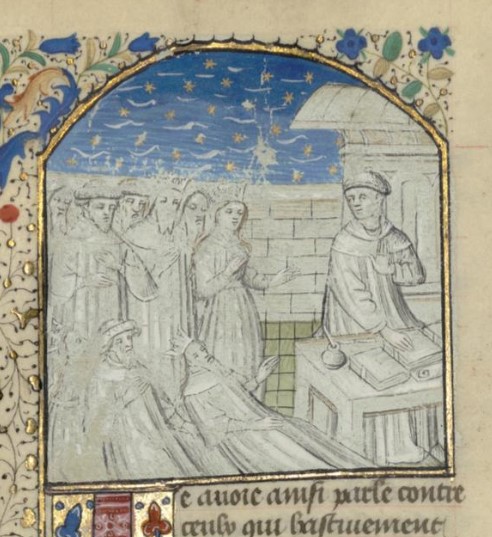 e auoie ainsi parle contre
ceulx qui hastiuement